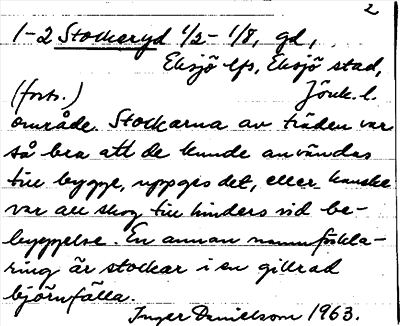 2
1-2 Stockeryd 1/2 - 1/8, gd,
Eksjö lfs, Eksjö stad,
(forts.) Jönk. l.
område. Stockarna av träden var
så bra att de kunde användas
till bygge, uppges det, eller kanske
var all skog till hinders vid be-
byggelse. En annan namnförkla-
ring är stockar i en gillrad
björnfälla.
Inger Danielsson 1963.